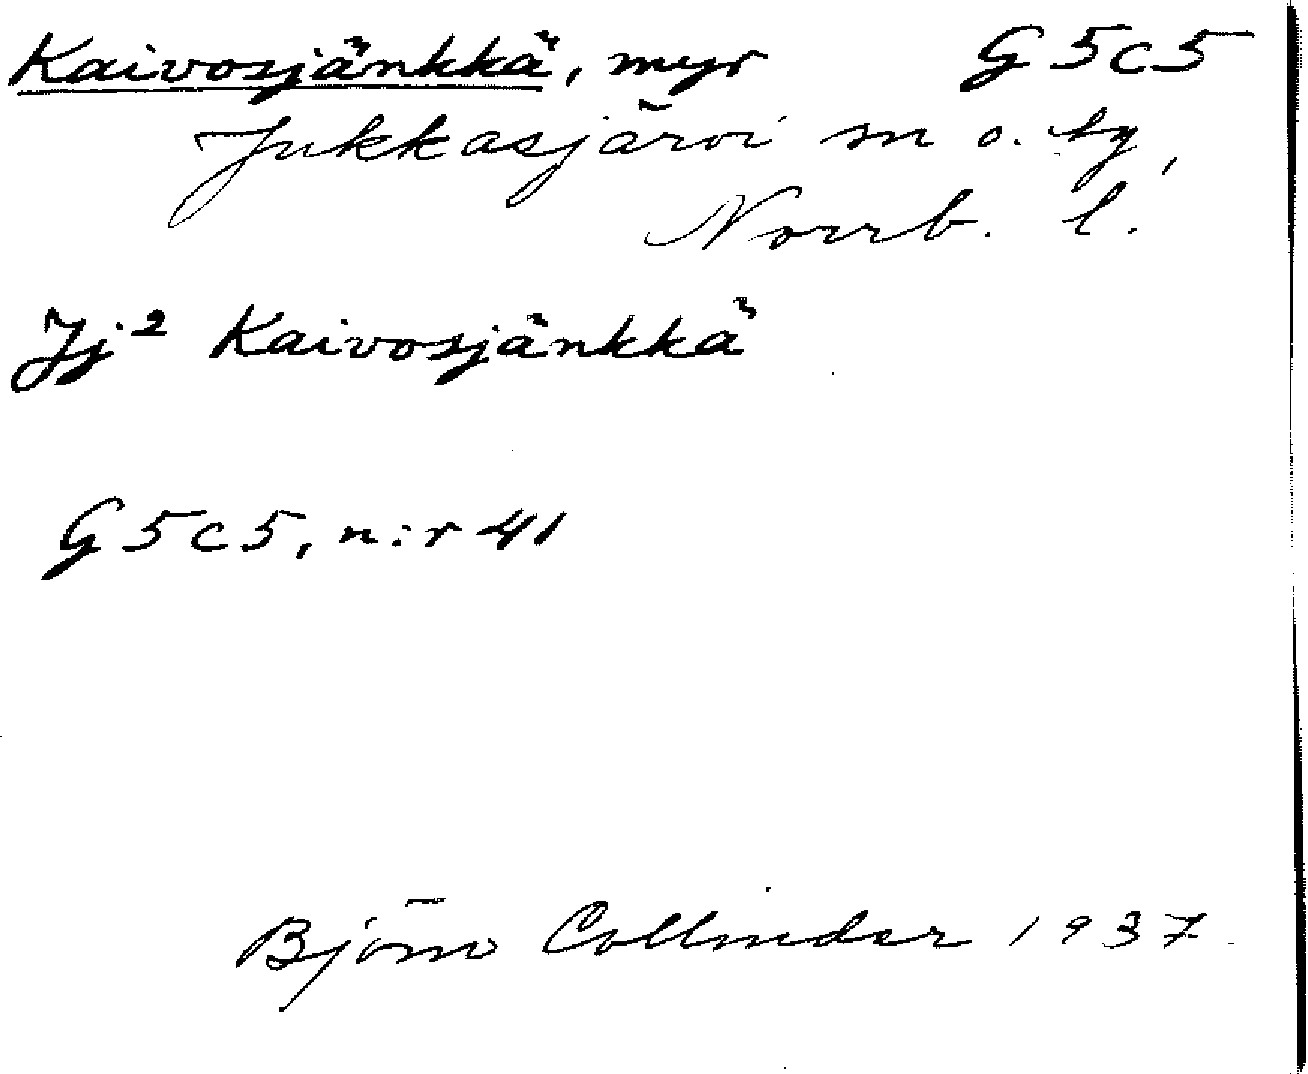 Kaivosjänkkä, myr G5c5
Jukkasjärvi sn o. tg,
Norrb. l.
Jj² Kaivosjänkkä
G5c5, n:r 41
Björn Collinder 1937